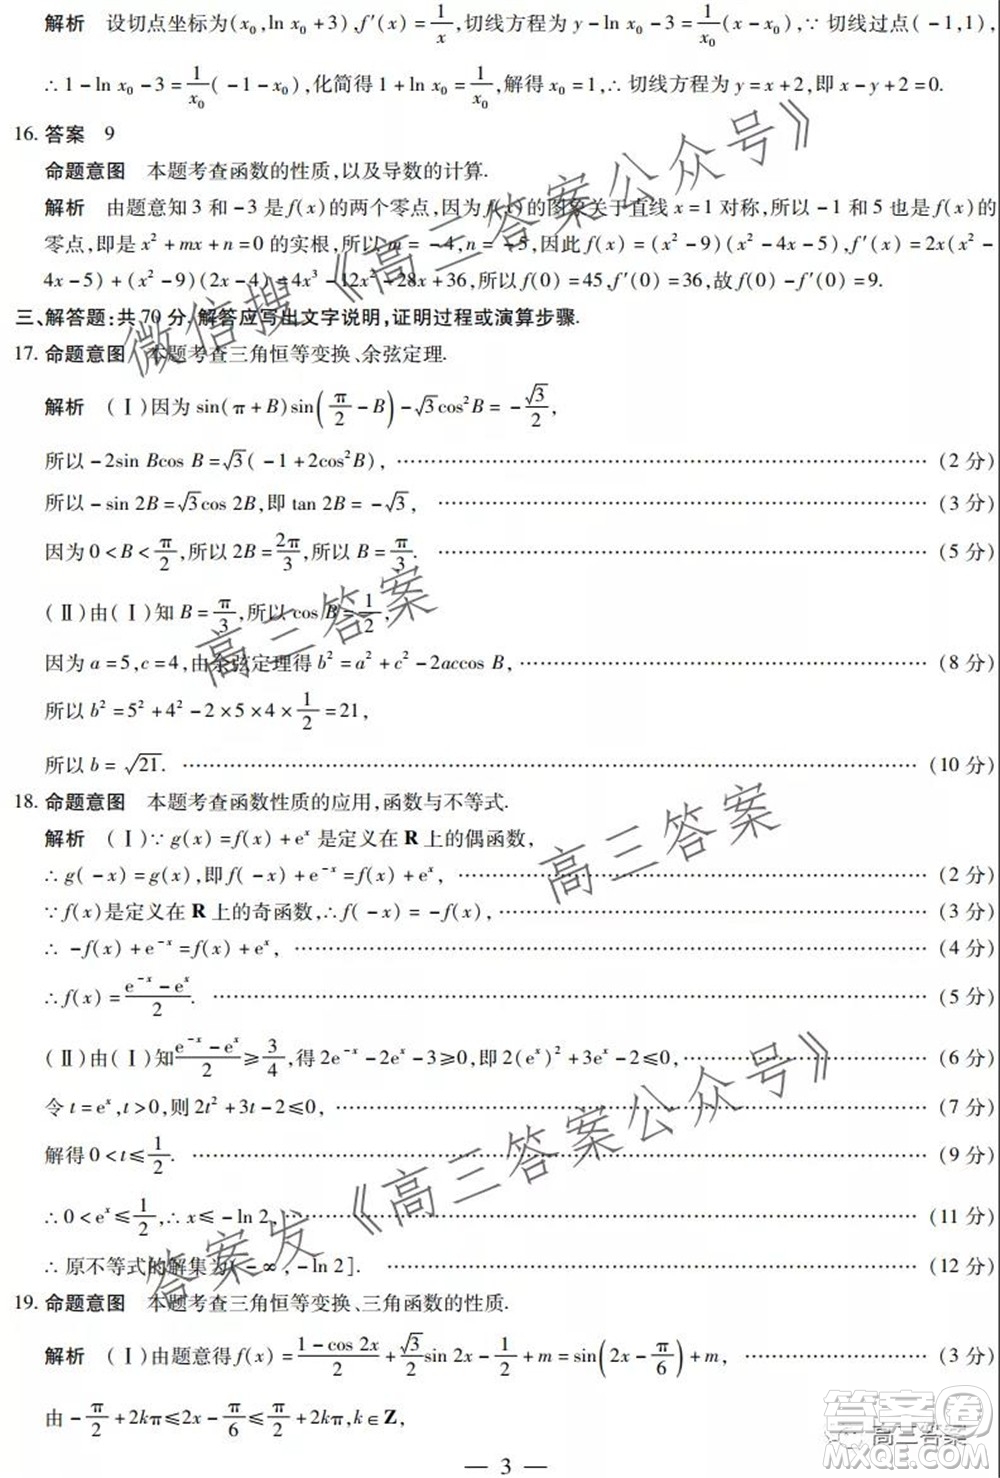 解析 设切点坐标为(x₀,ln x₀+3),f′(x)=1/x,切线方程为 y-ln x₀-3=1/x₀(x-x₀),∵ 切线过点(-1,1),
∴ 1-ln x₀-3=1/x₀(-1-x₀),化简得 1+ln x₀=1/x₀,解得 x₀=1,∴ 切线方程为 y=x+2,即 x-y+2=0.
16. 答案 9
命题意图 本题考查函数的性质,以及导数的计算.
解析 由题意知 3 和 -3 是 f(x)的两个零点,因为 f(x)的图象关于直线 x=1 对称,所以 -1 和 5 也是 f(x)的
零点,即是 x²+mx+n=0 的实根,所以 m=-4,n=-5,因此 f(x)=(x²-9)(x²-4x-5),f′(x)=2x(x²-
4x-5)+(x²-9)(2x-4)=4x³-12x²-28x+36,所以 f(0)=45,f′(0)=36,故 f(0)-f′(0)=9.
三、解答题:共 70 分.解答应写出文字说明,证明过程或演算步骤.
17. 命题意图 本题考查三角恒等变换、余弦定理.
解析 (Ⅰ)因为 sin(π+B)sin(π/2-B)-√3cos²B=-√3/2,
所以 -2sin Bcos B=√3(-1+2cos²B), ……(2 分)
所以 -sin 2B=√3cos 2B,即 tan 2B=-√3, ……(3 分)
因为 0<B<π/2,所以 2B=2π/3,所以 B=π/3. ……(5 分)
(Ⅱ)由(Ⅰ)知 B=π/3,所以 cos B=1/2,
因为 a=5,c=4,由余弦定理得 b²=a²+c²-2accos B, ……(8 分)
所以 b²=5²+4²-2×5×4×1/2=21,
所以 b=√21. ……(10 分)
18. 命题意图 本题考查函数性质的应用,函数与不等式.
解析 (Ⅰ)∵ g(x)=f(x)+eˣ 是定义在 R 上的偶函数,
∴ g(-x)=g(x),即 f(-x)+e⁻ˣ=f(x)+eˣ, ……(2 分)
∵ f(x)是定义在 R 上的奇函数,∴ f(-x)=-f(x), ……(3 分)
∴ -f(x)+e⁻ˣ=f(x)+eˣ, ……(4 分)
∴ f(x)=(e⁻ˣ-eˣ)/2. ……(5 分)
(Ⅱ)由(Ⅰ)知(e⁻ˣ-eˣ)/2≥3/4,得 2e⁻ˣ-2eˣ-3≥0,即 2(eˣ)²+3eˣ-2≤0, ……(6 分)
令 t=eˣ,t>0,则 2t²+3t-2≤0, ……(7 分)
解得 0<t≤1/2. ……(9 分)
∴ 0<eˣ≤1/2,∴ x≤-ln 2, ……(11 分)
∴ 原不等式的解集为(-∞,-ln 2]. ……(12 分)
19. 命题意图 本题考查三角恒等变换、三角函数的性质.
解析 (Ⅰ)由题意得 f(x)=(1-cos 2x)/2+√3/2 sin 2x-1/2+m=sin(2x-π/6)+m, ……(3 分)
由 -π/2+2kπ≤2x-π/6≤π/2+2kπ,k∈Z,
— 3 —
微信搜《高三答案公众号》
高三答案
高三答案
答案发《高三答案公众号》
高三答案
答案圈
MXQE.COM